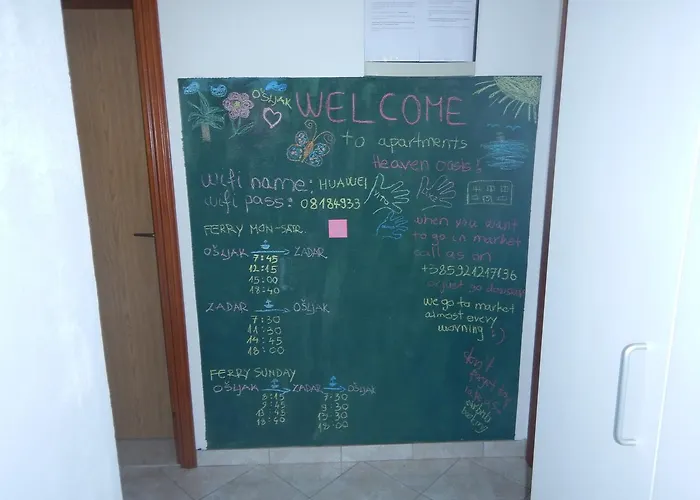 OŠLJAK
WELCOME
to apartments
Heaven oasis!
wifi name: HUAWEI
wifi pass: 08184933
FERRY MON-SATR.
OŠLJAK ZADAR
7:45
12:15
15:00
18:40
ZADAR OŠLJAK
7:30
11:30
14:45
18:00
FERRY SUNDAY
OŠLJAK ZADAR OŠLJAK
8:15 7:30
9:45 9:30
13:45 13:30
18:40 18:00
when you want
to go in market
call as on
+385921217136
or just go
we go to market
almost every
morning! :)